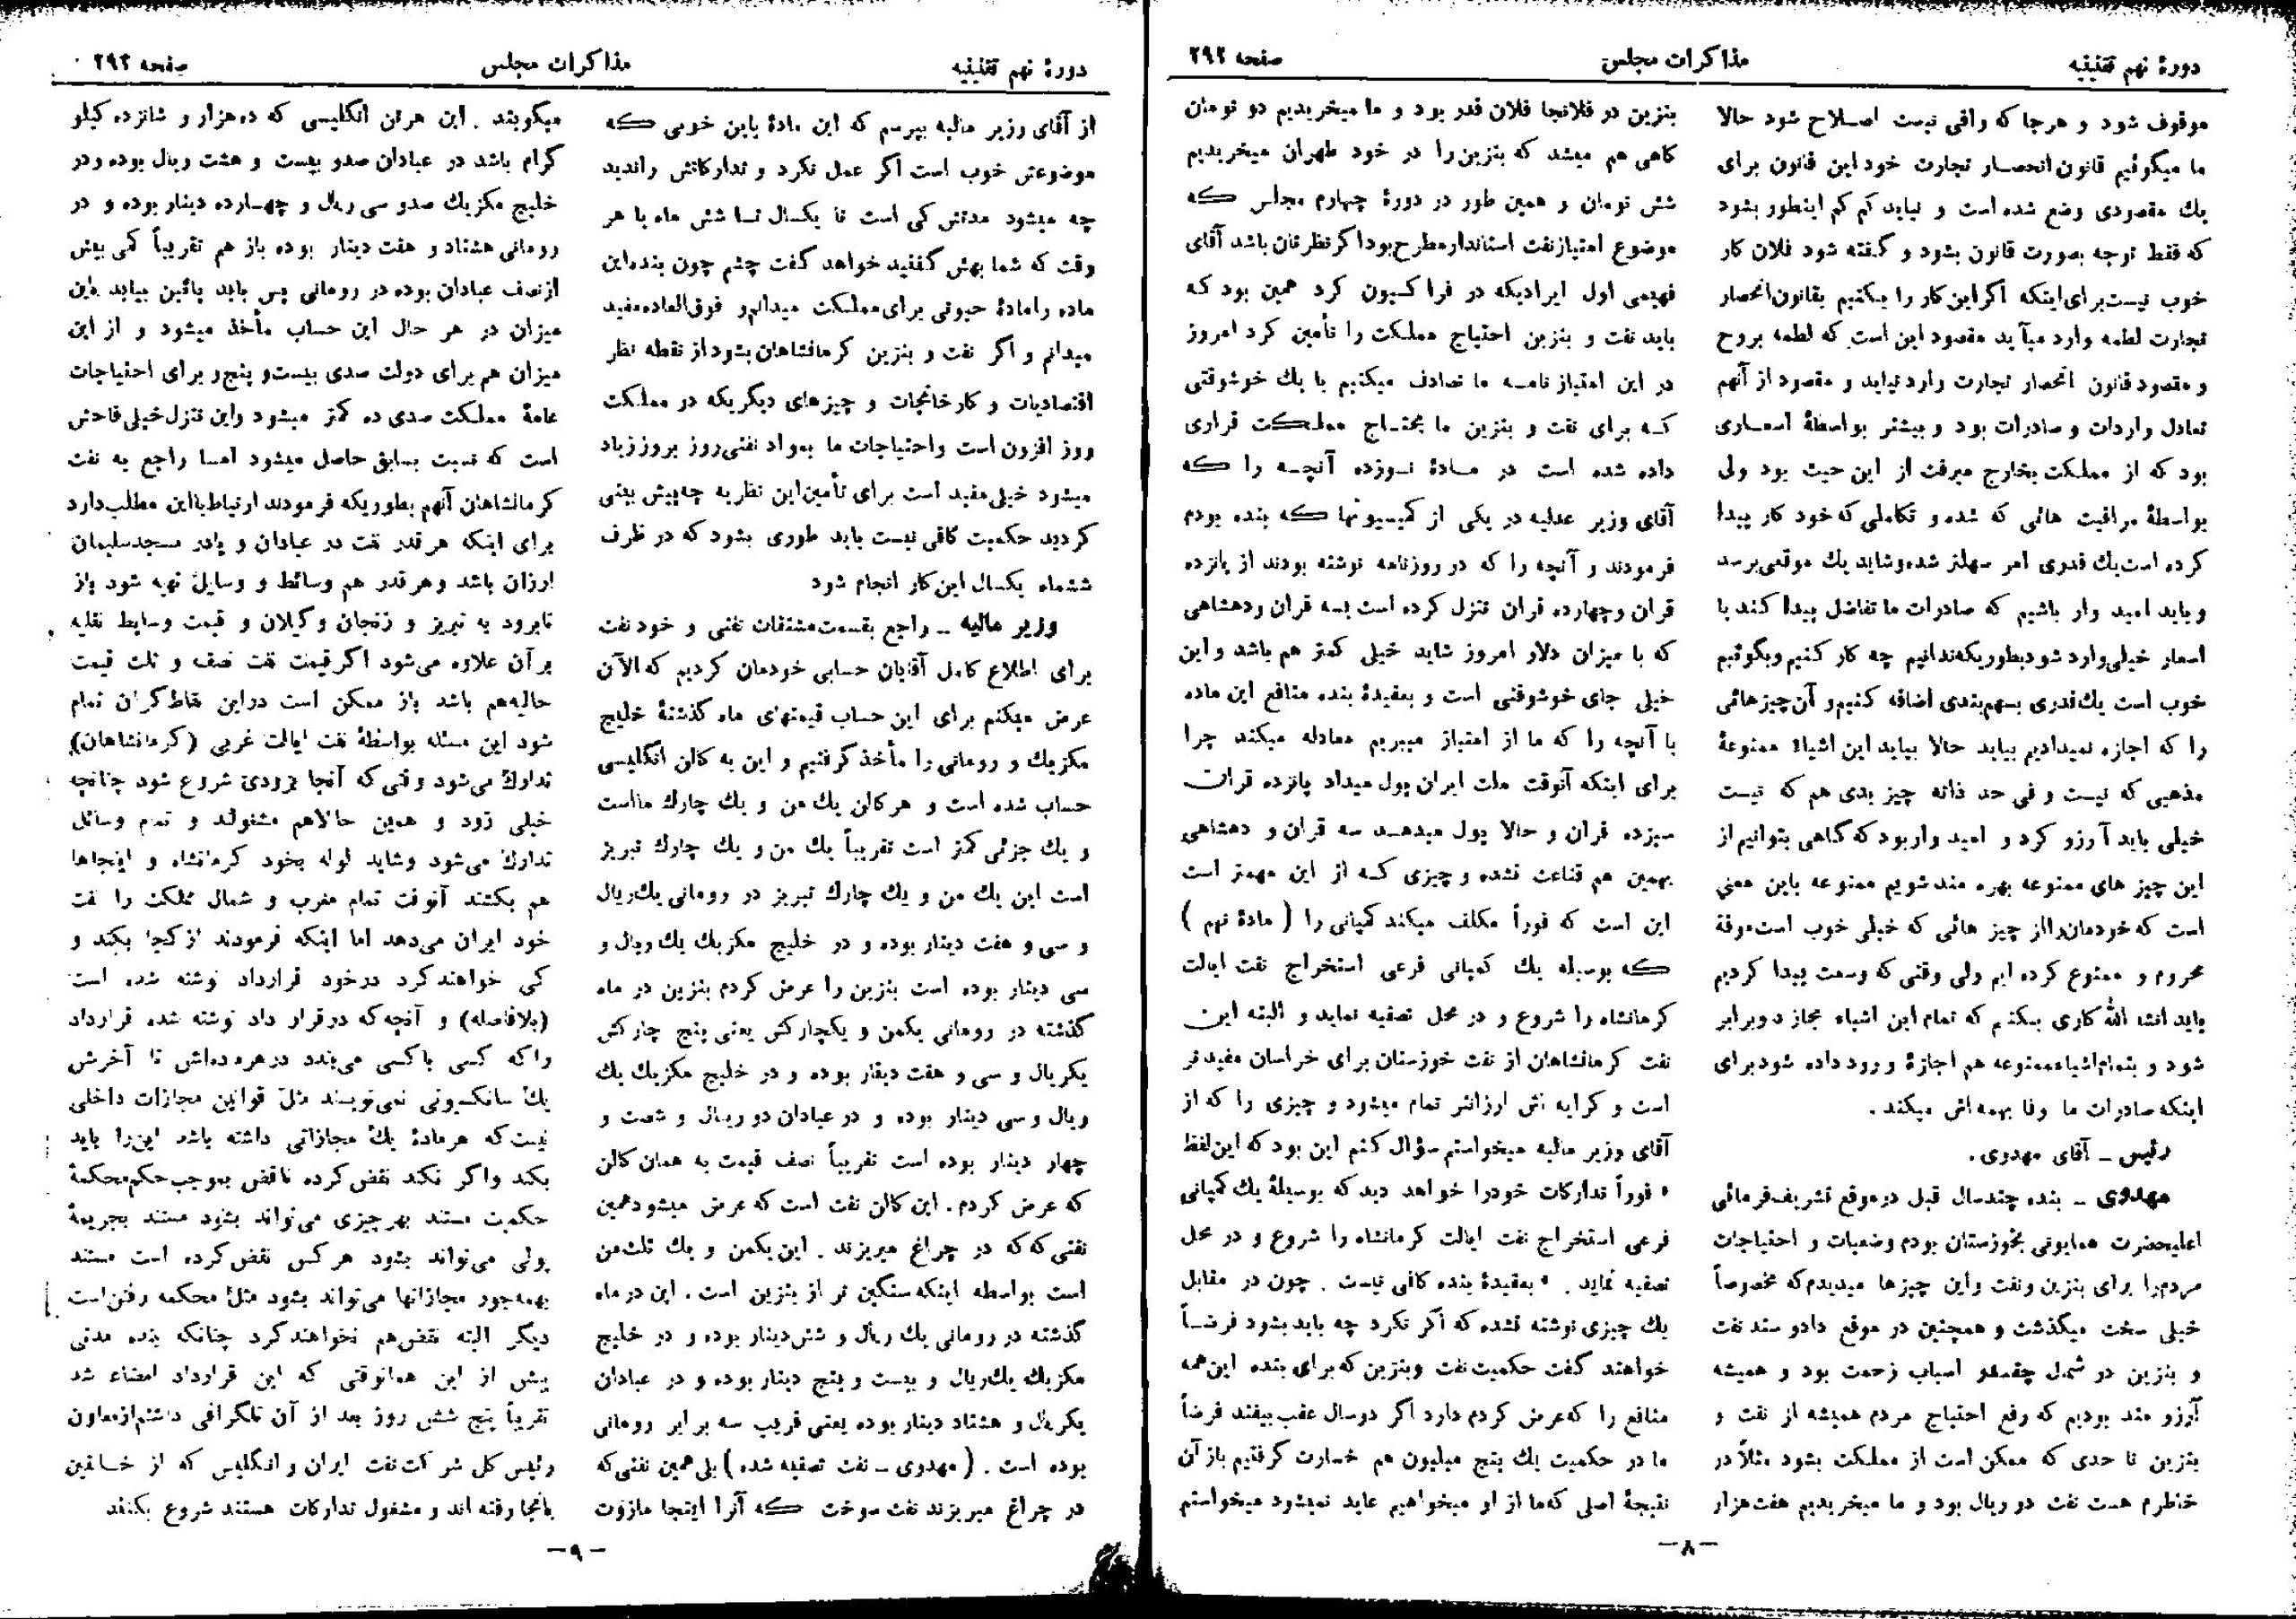 دورهٔ نهم تقنینیه
مذاکرات مجلس
صفحه ۲۹۲
موقوف شود و هرجا که راقی نیست اصلاح شود حالا
ما میگوئیم قانون انحصار تجارت خود این قانون برای
یك مقصودی وضع شده است و نباید کم کم اینطور بشود
که فقط توجه بصورت قانون بشود و گفته شود فلان کار
خوب نیست برای اینکه اگر این کار را بکنیم بقانون انحصار
تجارت لطمه وارد میآید مقصود این است که لطمه بروح
و مقصود قانون انحصار تجارت وارد نیاید و مقصود از آنهم
تعادل واردات و صادرات بود و بیشتر بواسطهٔ اسعاری
بود که از مملکت بخارج میرفت از این حیث بود ولی
بواسطهٔ مراقبت هائی که شده و تکاملی که خود کار پیدا
کرده است یك قدری امر سهلتر شده و شاید یك موقعی برسد
و باید امید وار باشیم که صادرات ما تفاضل پیدا کند یا
اسعار خیلی وارد شود بطوریکه ندانیم چه کار کنیم و بگوئیم
خوب است یك قدری بسهم بندی اضافه کنیم و آن چیزهائی
را که اجازه نمیدادیم بیاید حالا بیاید این اشیاء ممنوعهٔ
مذهبی که نیست و فی حد ذاته چیز بدی هم که نیست
خیلی باید آرزو کرد و امید وار بود که گاهی بتوانیم از
این چیز های ممنوعه بهره مند شویم ممنوعه باین معنی
است که خودمان را از چیز هائی که خیلی خوب است موقة
محروم و ممنوع کرده ایم ولی وقتی که وسعت پیدا کردیم
باید انشاء الله کاری بکنیم که تمام این اشیاء مجاز دوبرابر
شود و بتمام اشیاء ممنوعه هم اجازهٔ ورود داده شود برای
اینکه صادرات ما وفا بهمه اش میکند .
رئیس ــ آقای مهدوی .
مهدوی ــ بنده چندسال قبل درموقع تشریف فرمائی
اعلیحضرت همایونی بخوزستان بودم وضعیات و احتیاجات
مردم را برای بنزین و نفت و این چیزها میدیدم که مخصوصاً
خیلی سخت میگذشت و همچنین در موقع دادو ستد نفت
و بنزین در شمال چقدر اسباب زحمت بود و همیشه
آرزو مند بودیم که رفع احتیاج مردم همیشه از نفت و
بنزین تا حدی که ممکن است از مملکت بشود مثلاً در
خاطرم هست نفت دو ریال بود و ما میخریدیم هفت هزار
بنزین در فلانجا فلان قدر بود و ما میخریدیم دو تومان
گاهی هم میشد که بنزین را در خود طهران میخریدیم
شش تومان و همین طور در دورهٔ چهارم مجلس که
موضوع امتیاز نفت استاندارد مطرح بود اگر نظرتان باشد آقای
فهیمی اول ایرادیکه در فراکسیون کرد همین بود که
باید نفت و بنزین احتیاج مملکت را تأمین کرد امروز
در این امتیاز نامه ما تصادف میکنیم با یك خوشوقتی
که برای نفت و بنزین ما یحتاج مملکت قراری
داده شده است در مادهٔ نوزده آنچه را که
آقای وزیر عدلیه در یکی از کمیسیونها که بنده بودم
فرمودند و آنچه را که در روزنامه نوشته بودند از پانزده
قران و چهارده قران تنزل کرده است بسه قران و دهشاهی
که با میزان دلار امروز شاید خیلی کمتر هم باشد و این
خیلی جای خوشوقتی است و بعقیدهٔ بنده منافع این ماده
با آنچه را که ما از امتیاز میبریم معادله میکند چرا
برای اینکه آنوقت ملت ایران پول میداد پانزده قران
سیزده قران و حالا پول میدهد سه قران و دهشاهی
بهمین هم قناعت نشده و چیزی که از این مهمتر است
این است که فوراً مکلف میکند کمپانی را ( مادهٔ نهم )
که بوسیله یك کمپانی فرعی استخراج نفت ایالت
کرمانشاه را شروع و در محل تصفیه نماید و البته این
نفت کرمانشاهان از نفت خوزستان برای خراسان مفیدتر
است و کرایه اش ارزانتر تمام میشود و چیزی را که از
آقای وزیر مالیه میخواستم سؤال کنم این بود که این لفظ
« فوراً تدارکات خودرا خواهد دید که بوسیلهٔ یك کمپانی
فرعی استخراج نفت ایالت کرمانشاه را شروع و در محل
تصفیه نماید . » بعقیدهٔ بنده کافی نیست . چون در مقابل
یك چیزی نوشته نشده که اگر نکرد چه باید بشود فرضاً
خواهند گفت حکمیت نفت و بنزین که برای بنده این همه
منافع را که عرض کردم دارد اگر دوسال عقب بیفتد فرضاً
ما در حکمیت یك پنج میلیون هم خسارت گرفتیم باز آن
نتیجهٔ اصلی که ما از او میخواهیم عاید نمیشود میخواستم
ــ ۸ ــ
دورهٔ نهم تقنینیه
مذاکرات مجلس
صفحه ۲۹۲
از آقای وزیر مالیه بپرسم که این مادهٔ باین خوبی که
موضوعش خوب است اگر عمل نکرد و تدارکاتش را ندید
چه میشود مدتش کی است تا یکسال تا شش ماه یا هر
وقت که شما بهش گفتید خواهد گفت چشم چون بنده این
ماده را مادهٔ حیوتی برای مملکت میدانم و فوق العاده مفید
میدانم و اگر نفت و بنزین کرمانشاهان بشود از نقطه نظر
اقتصادیات و کارخانجات و چیزهای دیگریکه در مملکت
روز افزون است و احتیاجات ما بمواد نفتی روز بروز زیاد
میشود خیلی مفید است برای تأمین این نظریه چه پیش بینی
کردید حکمیت کافی نیست باید طوری بشود که در ظرف
ششماه یکسال این کار انجام شود
وزیر مالیه ــ راجع بقسمت مشتقات نفتی و خود نفت
برای اطلاع کامل آقایان حسابی خودمان کردیم که الآن
عرض میکنم برای این حساب قیمتهای ماه گذشتهٔ خلیج
مکزیك و رومانی را مأخذ گرفتیم و این به گالن انگلیسی
حساب شده است و هر گالن یك من و یك چارك ما است
و یك جزئی کمتر است تقریباً یك من و یك چارك تبریز
است این یك من و یك چارك تبریز در رومانی یك ریال
و سی و هفت دینار بوده و در خلیج مکزیك یك ریال و
سی دینار بوده است بنزین را عرض کردم بنزین در ماه
گذشته در رومانی یکمن و یکچارکش یعنی پنج چارکش
یکریال و سی و هفت دینار بوده و در خلیج مکزیك یك
ریال و سی دینار بوده و در عبادان دو ریال و شصت و
چهار دینار بوده است تقریباً نصف قیمت به همان گالن
که عرض کردم . این گالن نفت است که عرض میشود همین
نفتی که که در چراغ میریزند . این یکمن و یك ثلث من
است بواسطه اینکه سنگین تر از بنزین است . این در ماه
گذشته در رومانی یك ریال و شش دینار بوده و در خلیج
مکزیك یك ریال و بیست و پنج دینار بوده و در عبادان
یکریال و هشتاد دینار بوده یعنی قریب سه برابر رومانی
بوده است . ( مهدوی ــ نفت تصفیه شده ) بلی همین نفتی که
در چراغ میریزند نفت سوخت که آنرا اینجا مازوت
میگویند . این هرتن انگلیسی که ده هزار و شانزده کیلو
گرام باشد در عبادان صدو بیست و هشت ریال بوده و در
خلیج مکزیك صدو سی ریال و چهارده دینار بوده و در
رومانی هشتاد و هفت دینار بوده باز هم تقریباً کمی بیش
از نصف عبادان بوده در رومانی پس باید پائین بیاید باین
میزان در هر حال این حساب مأخذ میشود و از این
میزان هم برای دولت صدی بیست و پنج و برای احتیاجات
عامهٔ مملکت صدی ده کمتر میشود و این تنزل خیلی فاحش
است که نسبت بسابق حاصل میشود اما راجع به نفت
کرمانشاهان آنهم بطوریکه فرمودند ارتباط با این مطلب دارد
برای اینکه هر قدر نفت در عبادان و یادر مسجد سلیمان
ارزان باشد و هر قدر هم وسائط و وسایل تهیه شود باز
تا برود به تبریز و زنجان و گیلان و قیمت وسایط نقلیه
بر آن علاوه می شود اگر قیمت نفت نصف و ثلث قیمت
حالیه هم باشد باز ممکن است در این نقاط گران تمام
شود این مسئله بواسطهٔ نفت ایالت غربی (کرمانشاهان)
تدارك می شود وقتی که آنجا بزودی شروع شود چنانچه
خیلی زود و همین حالاهم مشغولند و تمام وسائل
تدارك می شود و شاید لوله بخود کرمانشاه و اینجاها
هم بکشند آنوقت تمام مغرب و شمال مملکت را نفت
خود ایران می دهد اما اینکه فرمودند از کجا بکند و
کی خواهند کرد در خود قرارداد نوشته شده است
(بلافاصله) و آنچه که در قرار داد نوشته شده قرارداد
را که کسی با کسی می بندد در هر ماده اش تا آخرش
یك سانکسیونی نمی نویسند مثل قوانین مجازات داخلی
نیست که هر مادهٔ یك مجازاتی داشته باشد این را باید
بکند و اگر نکند نقض کرده ناقض بموجب حکم محکمهٔ
حکمیت مستند بهر چیزی می تواند بشود مستند بجریمهٔ
پولی می تواند بشود هر کس نقض کرده است مستند
بهمه جور مجازاتها می تواند بشود مثل محکمه رفتن است
دیگر البته نقض هم نخواهند کرد چنانکه بنده مدتی
پیش از این همانوقتی که این قرارداد امضاء شد
تقریباً پنج شش روز بعد از آن تلگرافی داشتم از معاون
رئیس کل شرکت نفت ایران و انگلیس که از خانقین
بآنجا رفته اند و مشغول تدارکات هستند شروع بکنند
ــ ۹ ــ